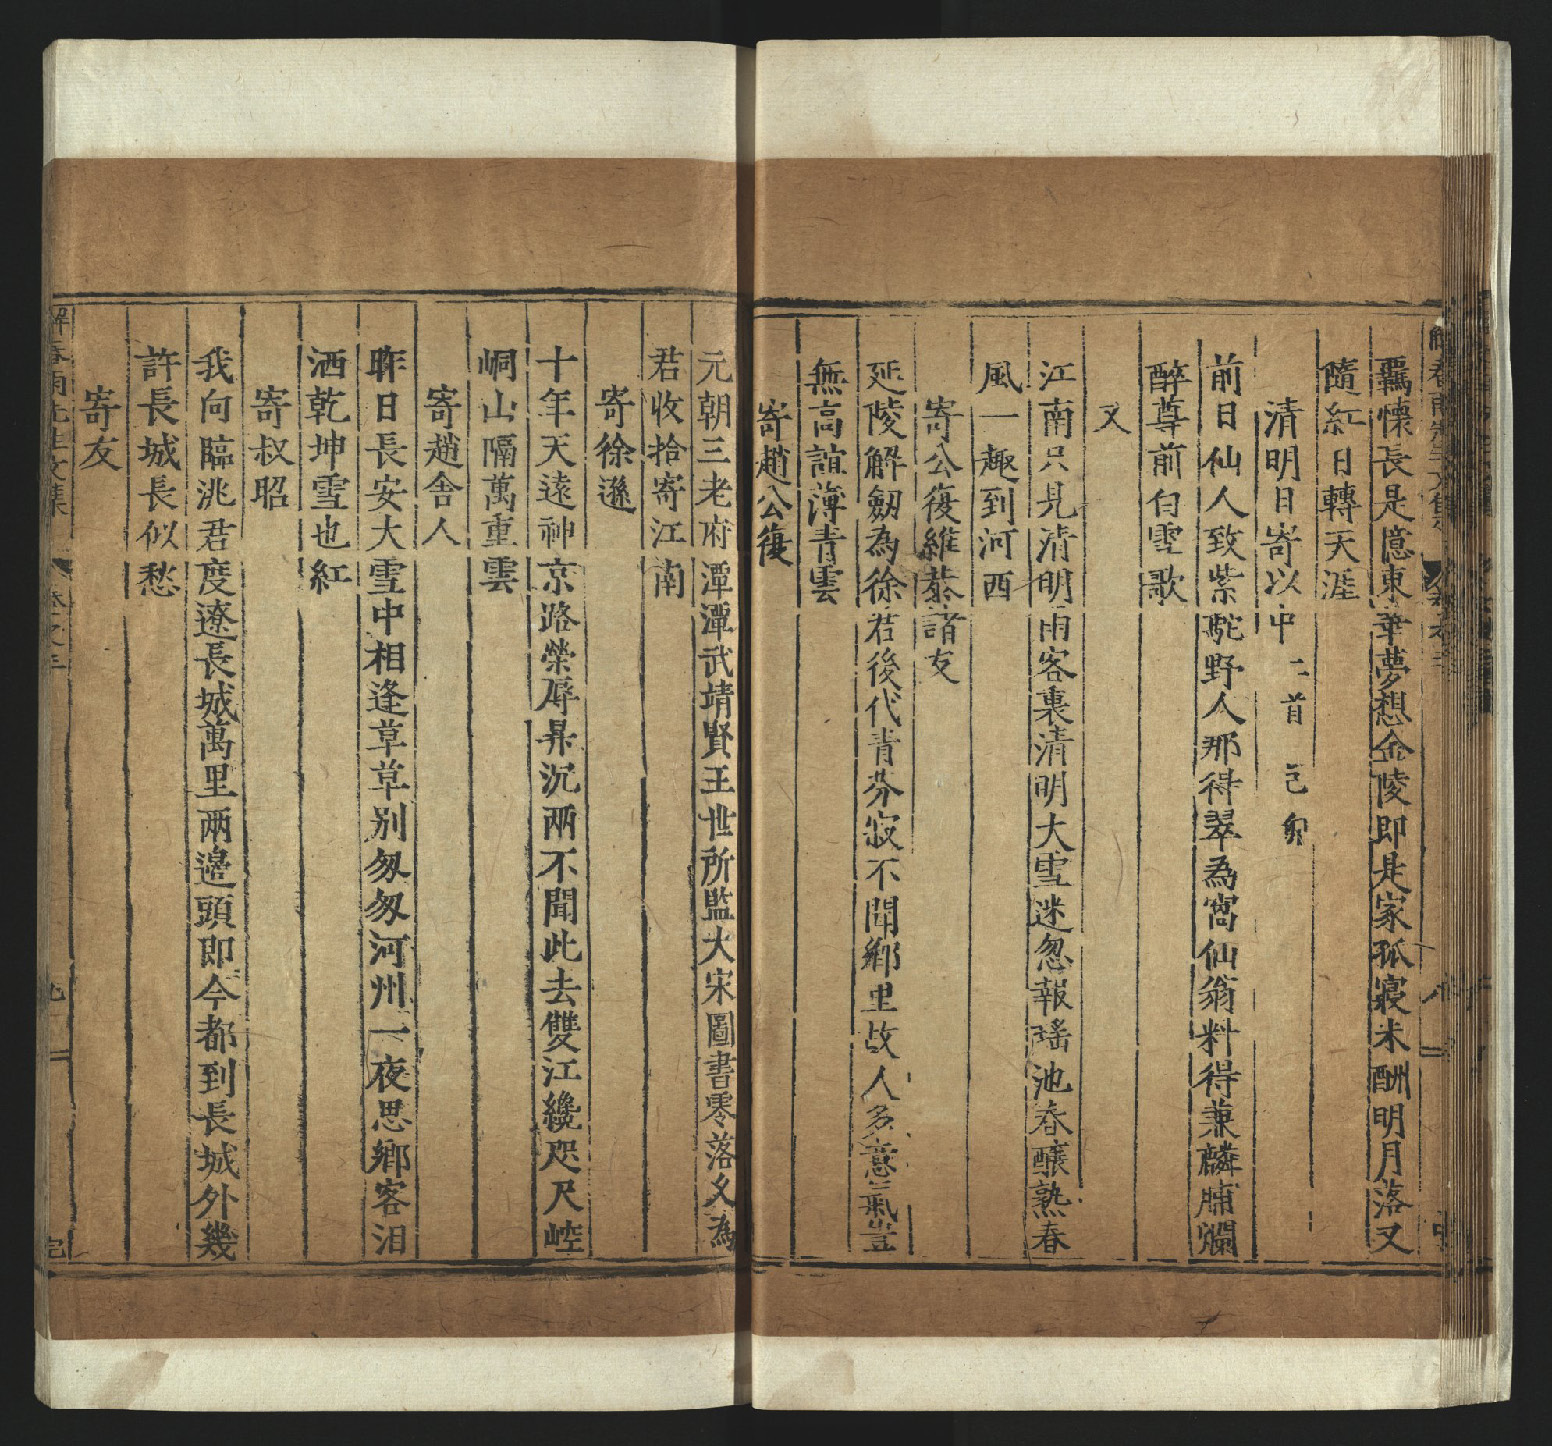 羈懷長是憶東華夢想金陵即是家孤寢未酬明月落又
隨紅日轉天涯
清明日寄以中 二首 己卯
前日仙人致紫駝野人那得翠為窩仙翁料得兼麟脯爛
醉尊前白雪歌
又
江南只見清明雨客裏清明大雪迷忽報瑤池春釀熟春
風一趣到河西
寄公復維恭諸友
延陵解劒為徐君後代青芬寂不聞鄉里故人多意氣豈
無高誼薄青雲
寄趙公復
元朝三老府潭潭武靖賢王世所監大宋圖書零落久為
君收拾寄江南
寄徐遜
十年天遠神京路榮辱昇沉兩不聞此去雙江纔咫尺崆
峒山隔萬重雲
寄趙舍人
昨日長安大雪中相逢草草別匆匆河州一夜思鄉客泪
洒乾坤雪也紅
寄叔昭
我向臨洮君度遼長城萬里兩邊頭即今都到長城外幾
許長城長似愁
寄友
解春雨先生文集 卷之三